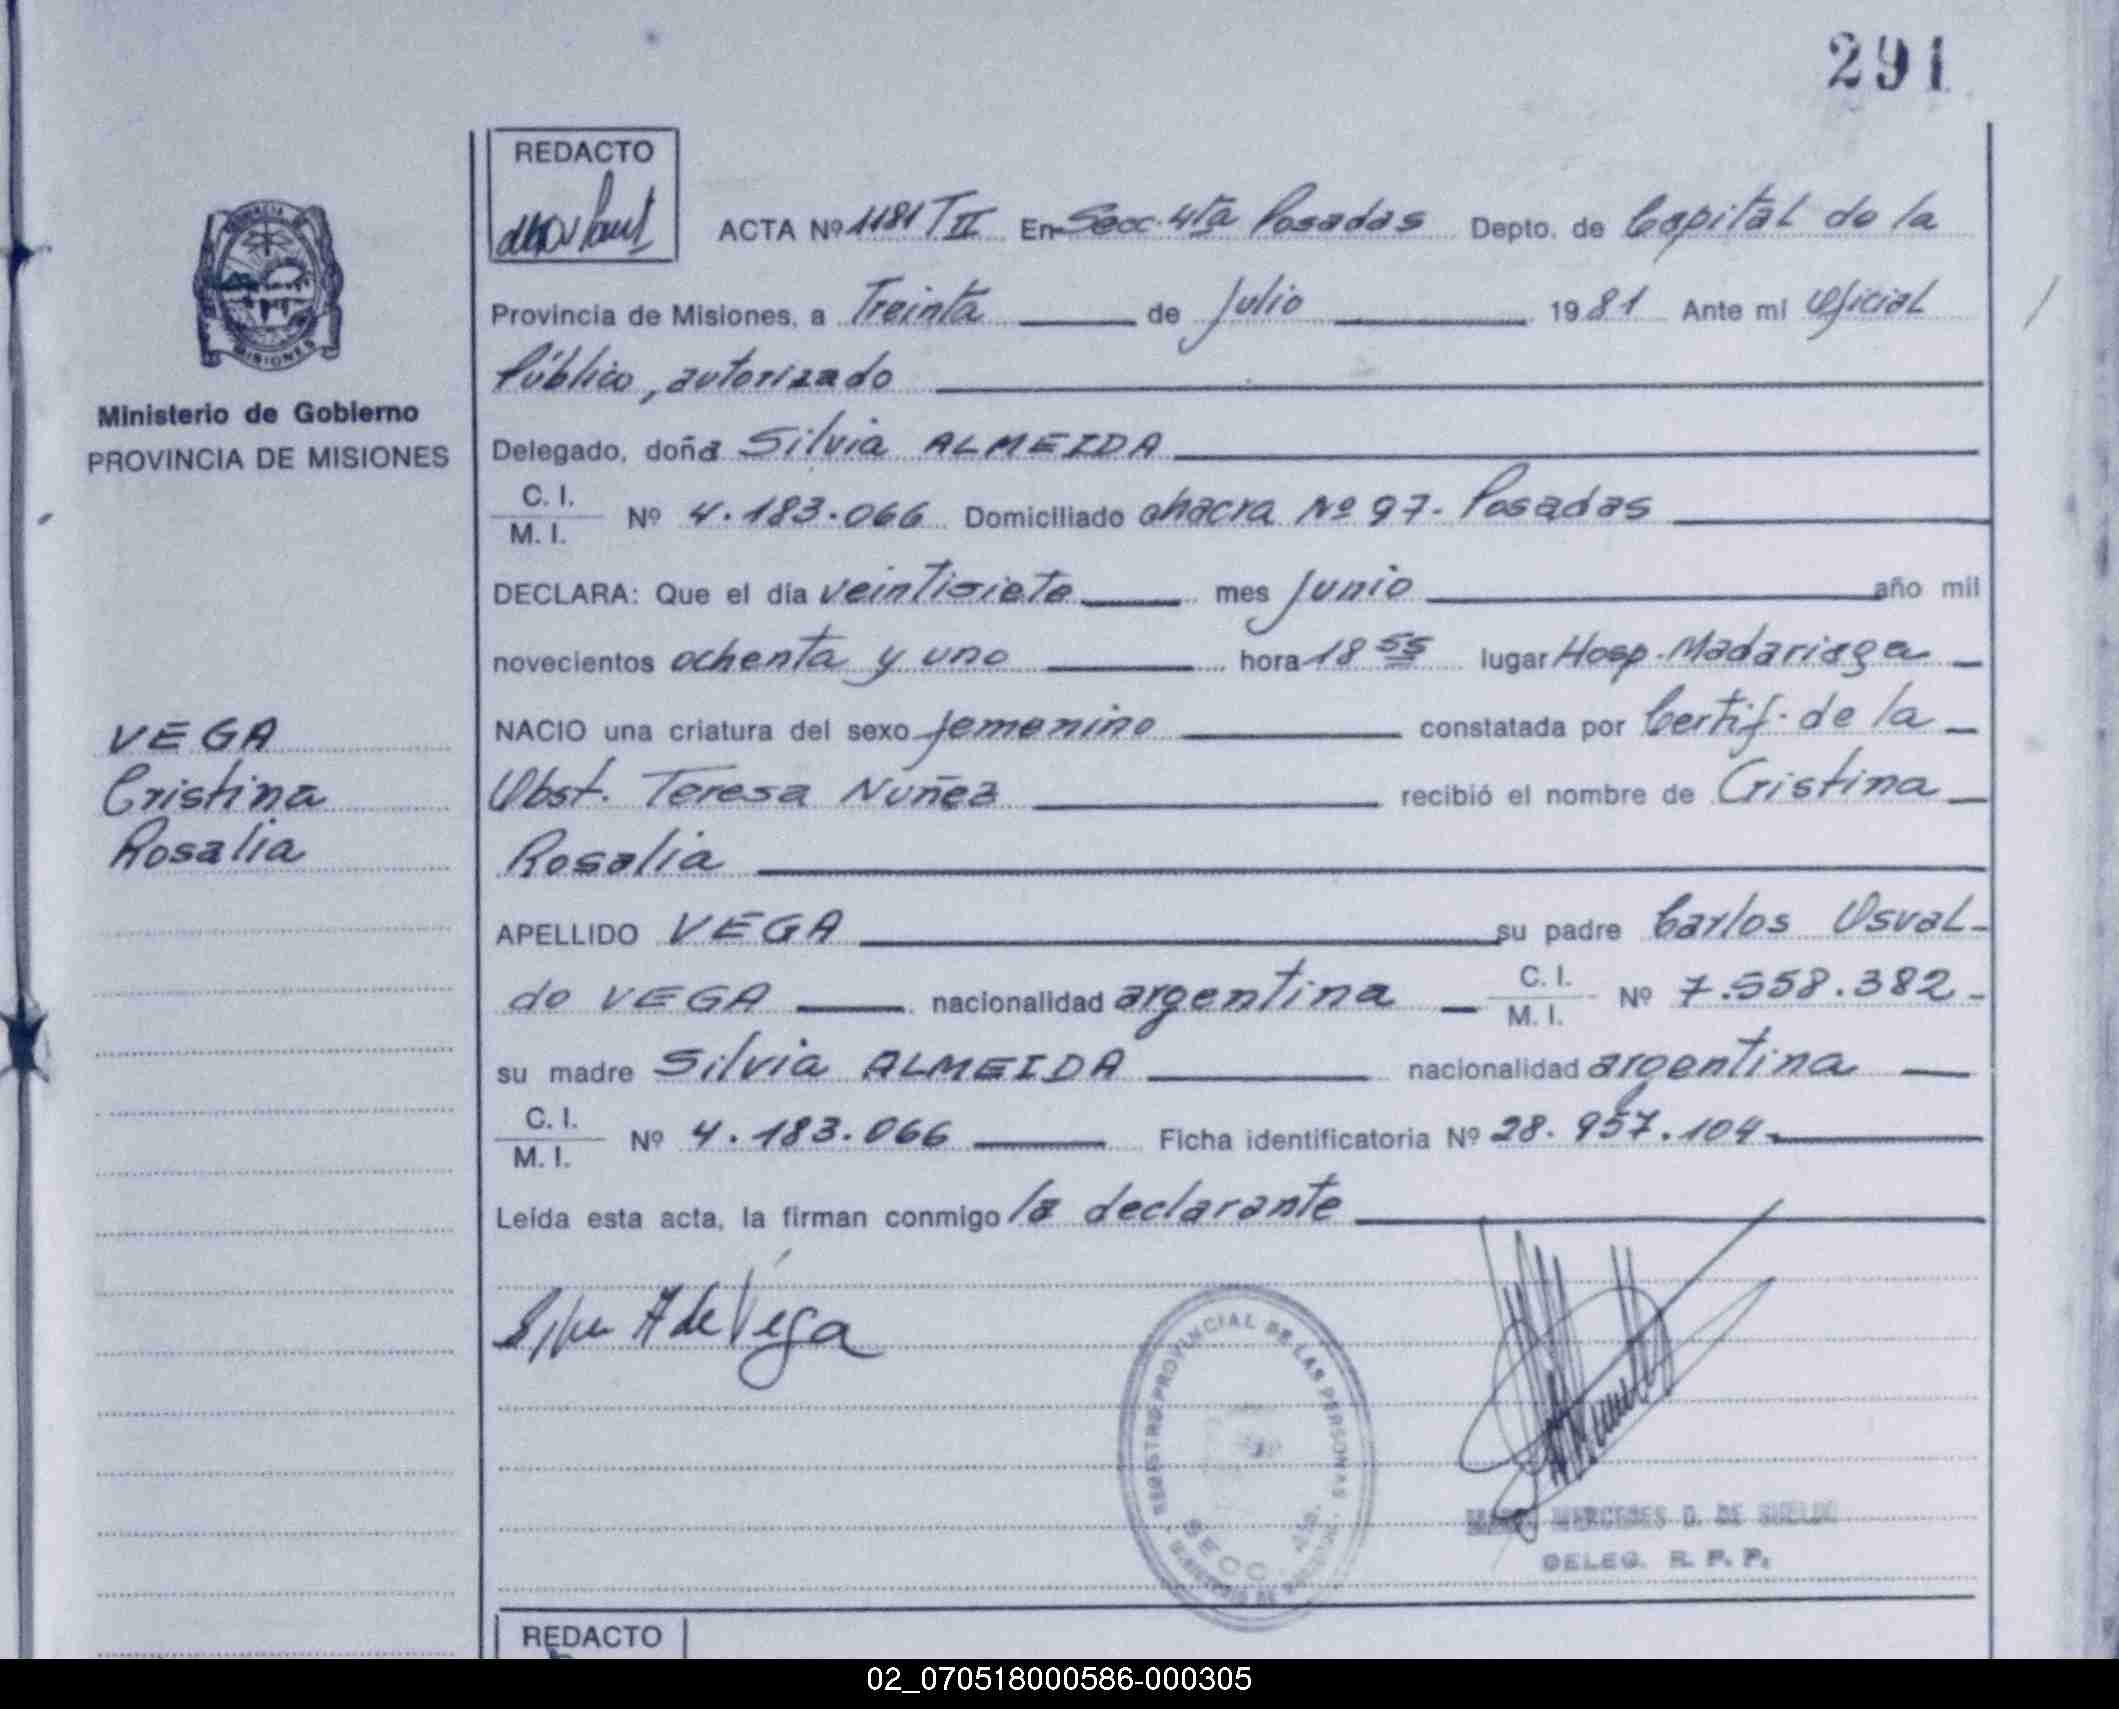 291
REDACTO
ACTA Nº 1181/T II En Secc. 4ta Posadas Depto. de Capital de la
Provincia de Misiones, a Treinta de Julio 1981 Ante mi Oficial
Público, autorizado
Delegado, doña Silvia ALMEIDA
C. I.
M. I.
Nº 4.183.066 Domiciliado chacra Nº 97 - Posadas
DECLARA: Que el día veintisiete mes Junio año mil
novecientos ochenta y uno hora 18 55 lugar Hosp. Madariaga
NACIO una criatura del sexo femenino constatada por Certif. de la
Obst. Teresa Nuñez recibió el nombre de Cristina
Rosalia
APELLIDO VEGA su padre Carlos Osval-
do VEGA nacionalidad argentina C. I. M. I. Nº 7.558.382 -
su madre Silvia ALMEIDA nacionalidad argentina
C. I.
M. I.
Nº 4.183.066 Ficha identificatoria Nº 28.957.104 -
Leída esta acta, la firman conmigo la declarante
A de Vega
REGISTRO PROVINCIAL DE LAS PERSONAS
SECC. 4ta.
MERCEDES D. DE
DELEG. R. P. P.
REDACTO
PROVINCIA DE
MISIONES
Ministerio de Gobierno
PROVINCIA DE MISIONES
VEGA
Cristina
Rosalia
02_070518000586-000305